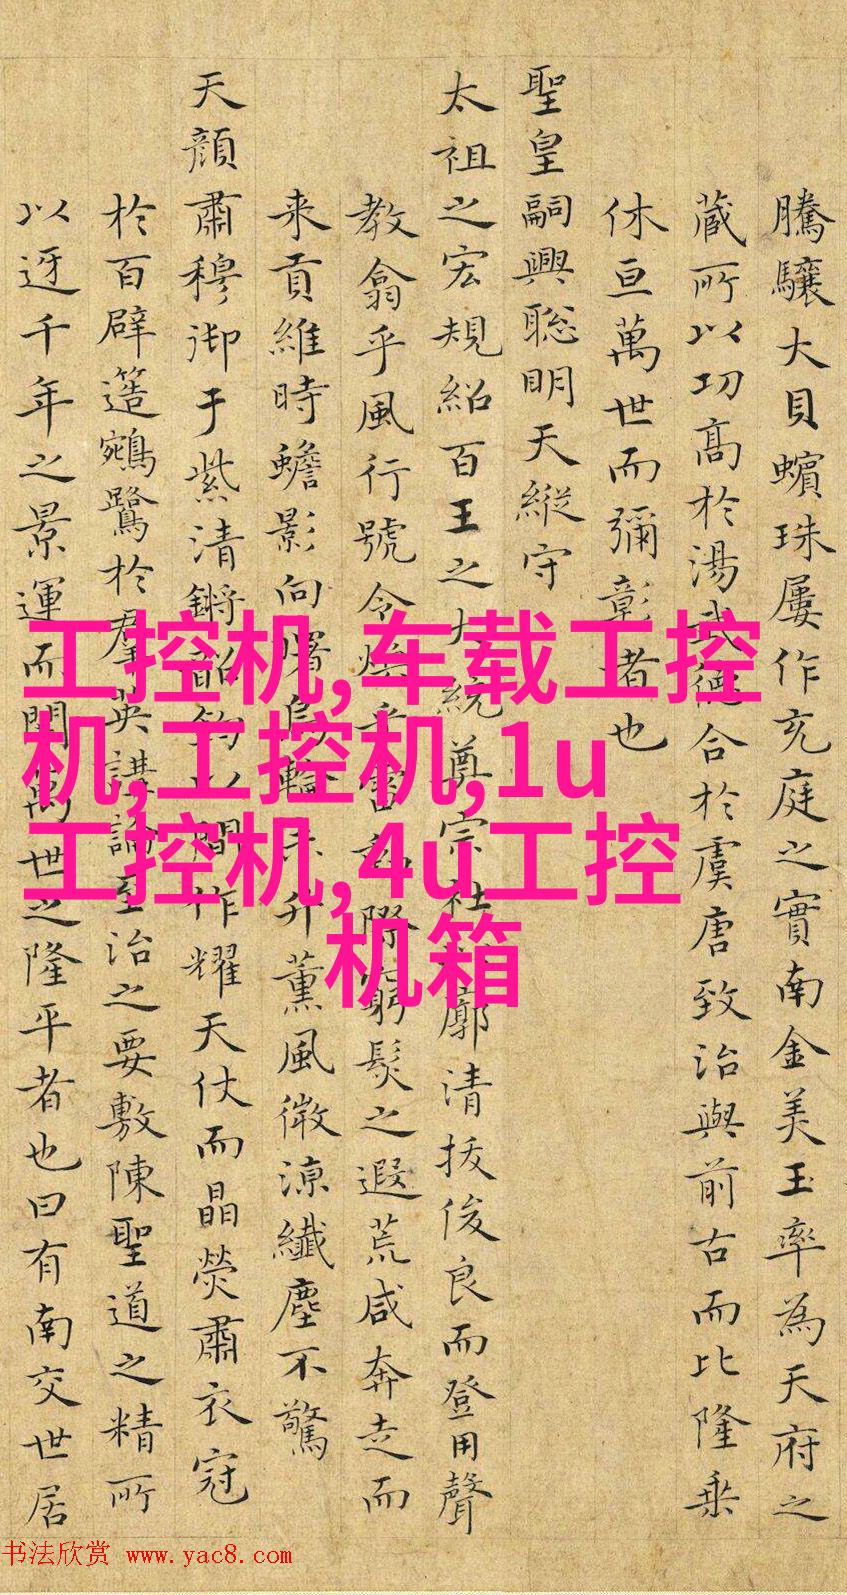 騰驤大貝蠙珠屢作充庭之實南金美玉率為天府之
蔵所以功高於湯武德合於虞唐致治與前古而比隆乗
休亘萬世而彌彰者也
聖皇嗣興聡明天縱守
太祖之宏規紹百王之大統尊宗社廓清拔俊良而登用聲
教翕乎風行號令煥乎雷窮髮之遐荒咸奔走而
来貢維時蟾影向曙烏輪未升薰風微涼纎塵不驚
天顔肅穆御于紫清鏘韶鈞以間作耀天仗而晶熒肅衣冠
於百辟簉鵷鷺於羣英講論至治之要敷陳聖道之精所
以迓千年之景運而開萬世之隆平者也曰有南交世居
工控机,车载工控
机,工控机,1u
工控机,4u工控
机箱
书法欣赏 www.yac8.com